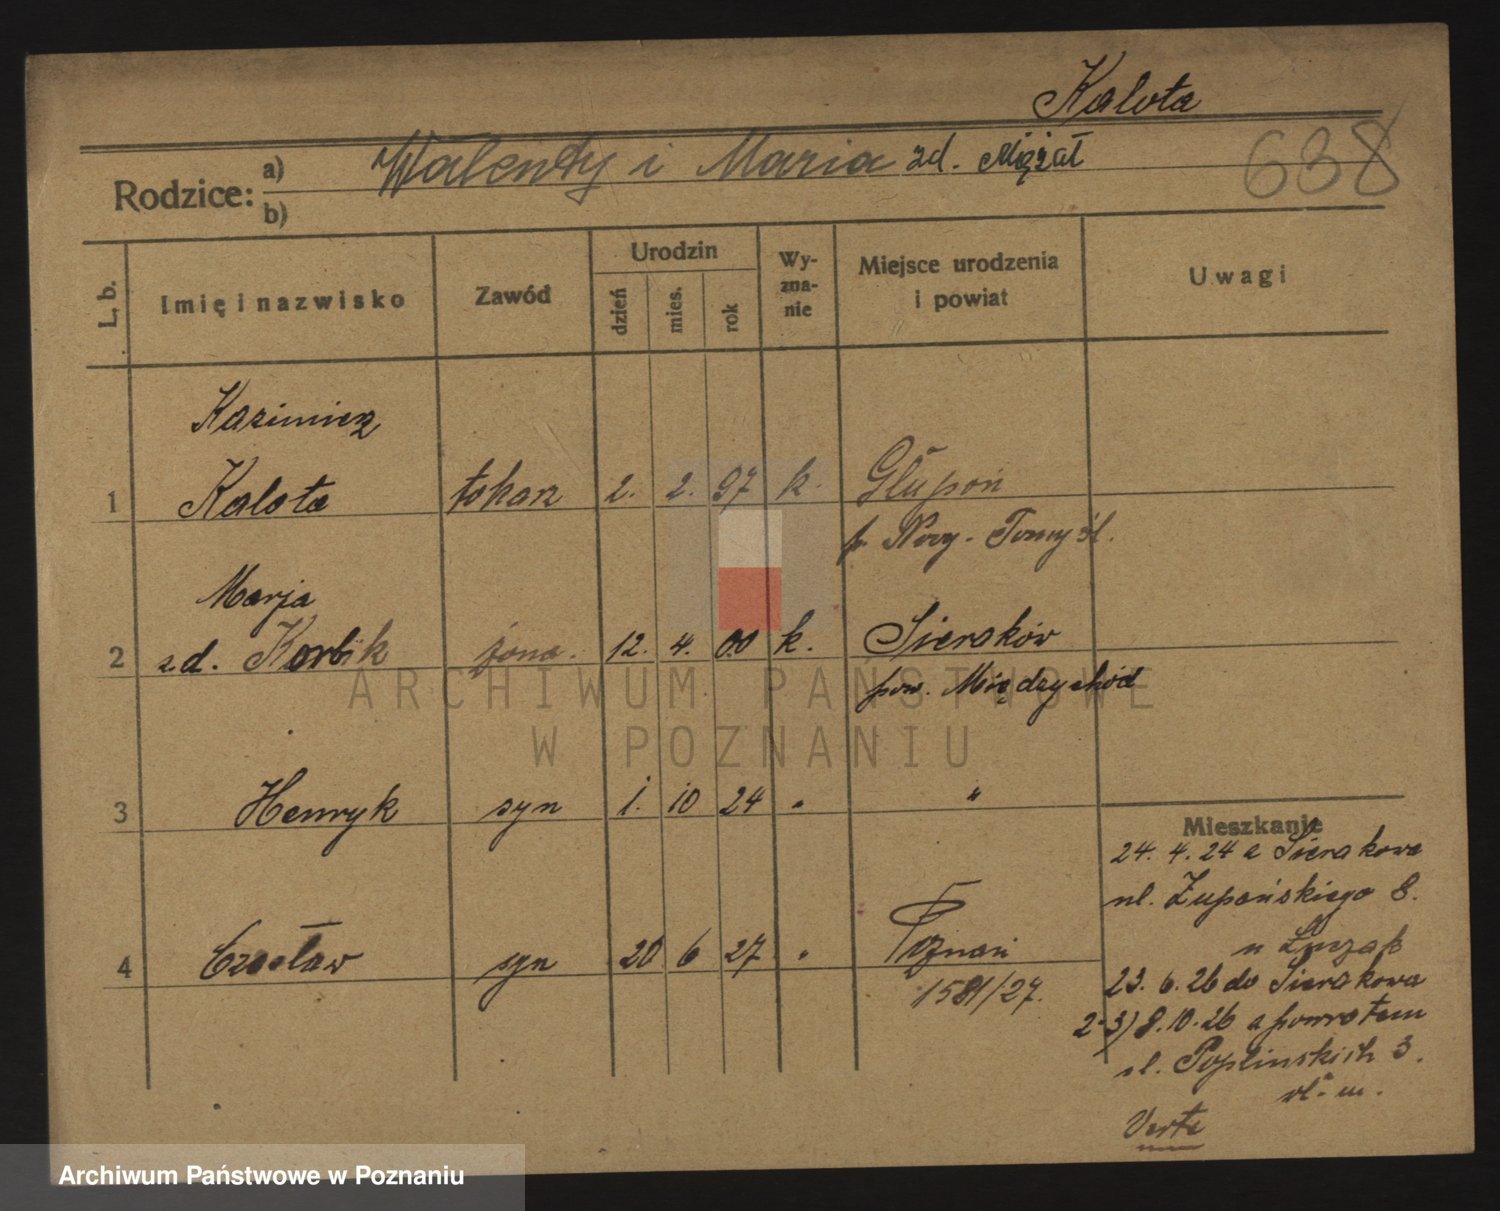 Kalota
638
Rodzice: a) Walenty i Maria zd. Miężał
b)
L. b. Imię i nazwisko Zawód Urodzin dzień mies. rok Wyznanie Miejsce urodzenia i powiat Uwagi
Kazimierz
1 Kalota tokarz 2. 2. 97 k. Głupoń
p. Nowy-Tomyśl.
Marja
2 zd. Korbik żona. 12. 4. 00 k. Sieraków
pow. Międzychód
3 Henryk syn 1. 10 24 " "
4 Czesław syn 20 6 27 " Poznań
1581/27.
Mieszkanie
24. 4. 24 z Sierakowa
ul. Żupańskiego 8.
u
23. 6. 26 do Sierakowa
2-3) 8.10.26 z powrotem
ul. Poplinskich 3.
wł. m.
Verte
ARCHIWUM PAŃSTWOWE
W POZNANIU
Archiwum Państwowe w Poznaniu